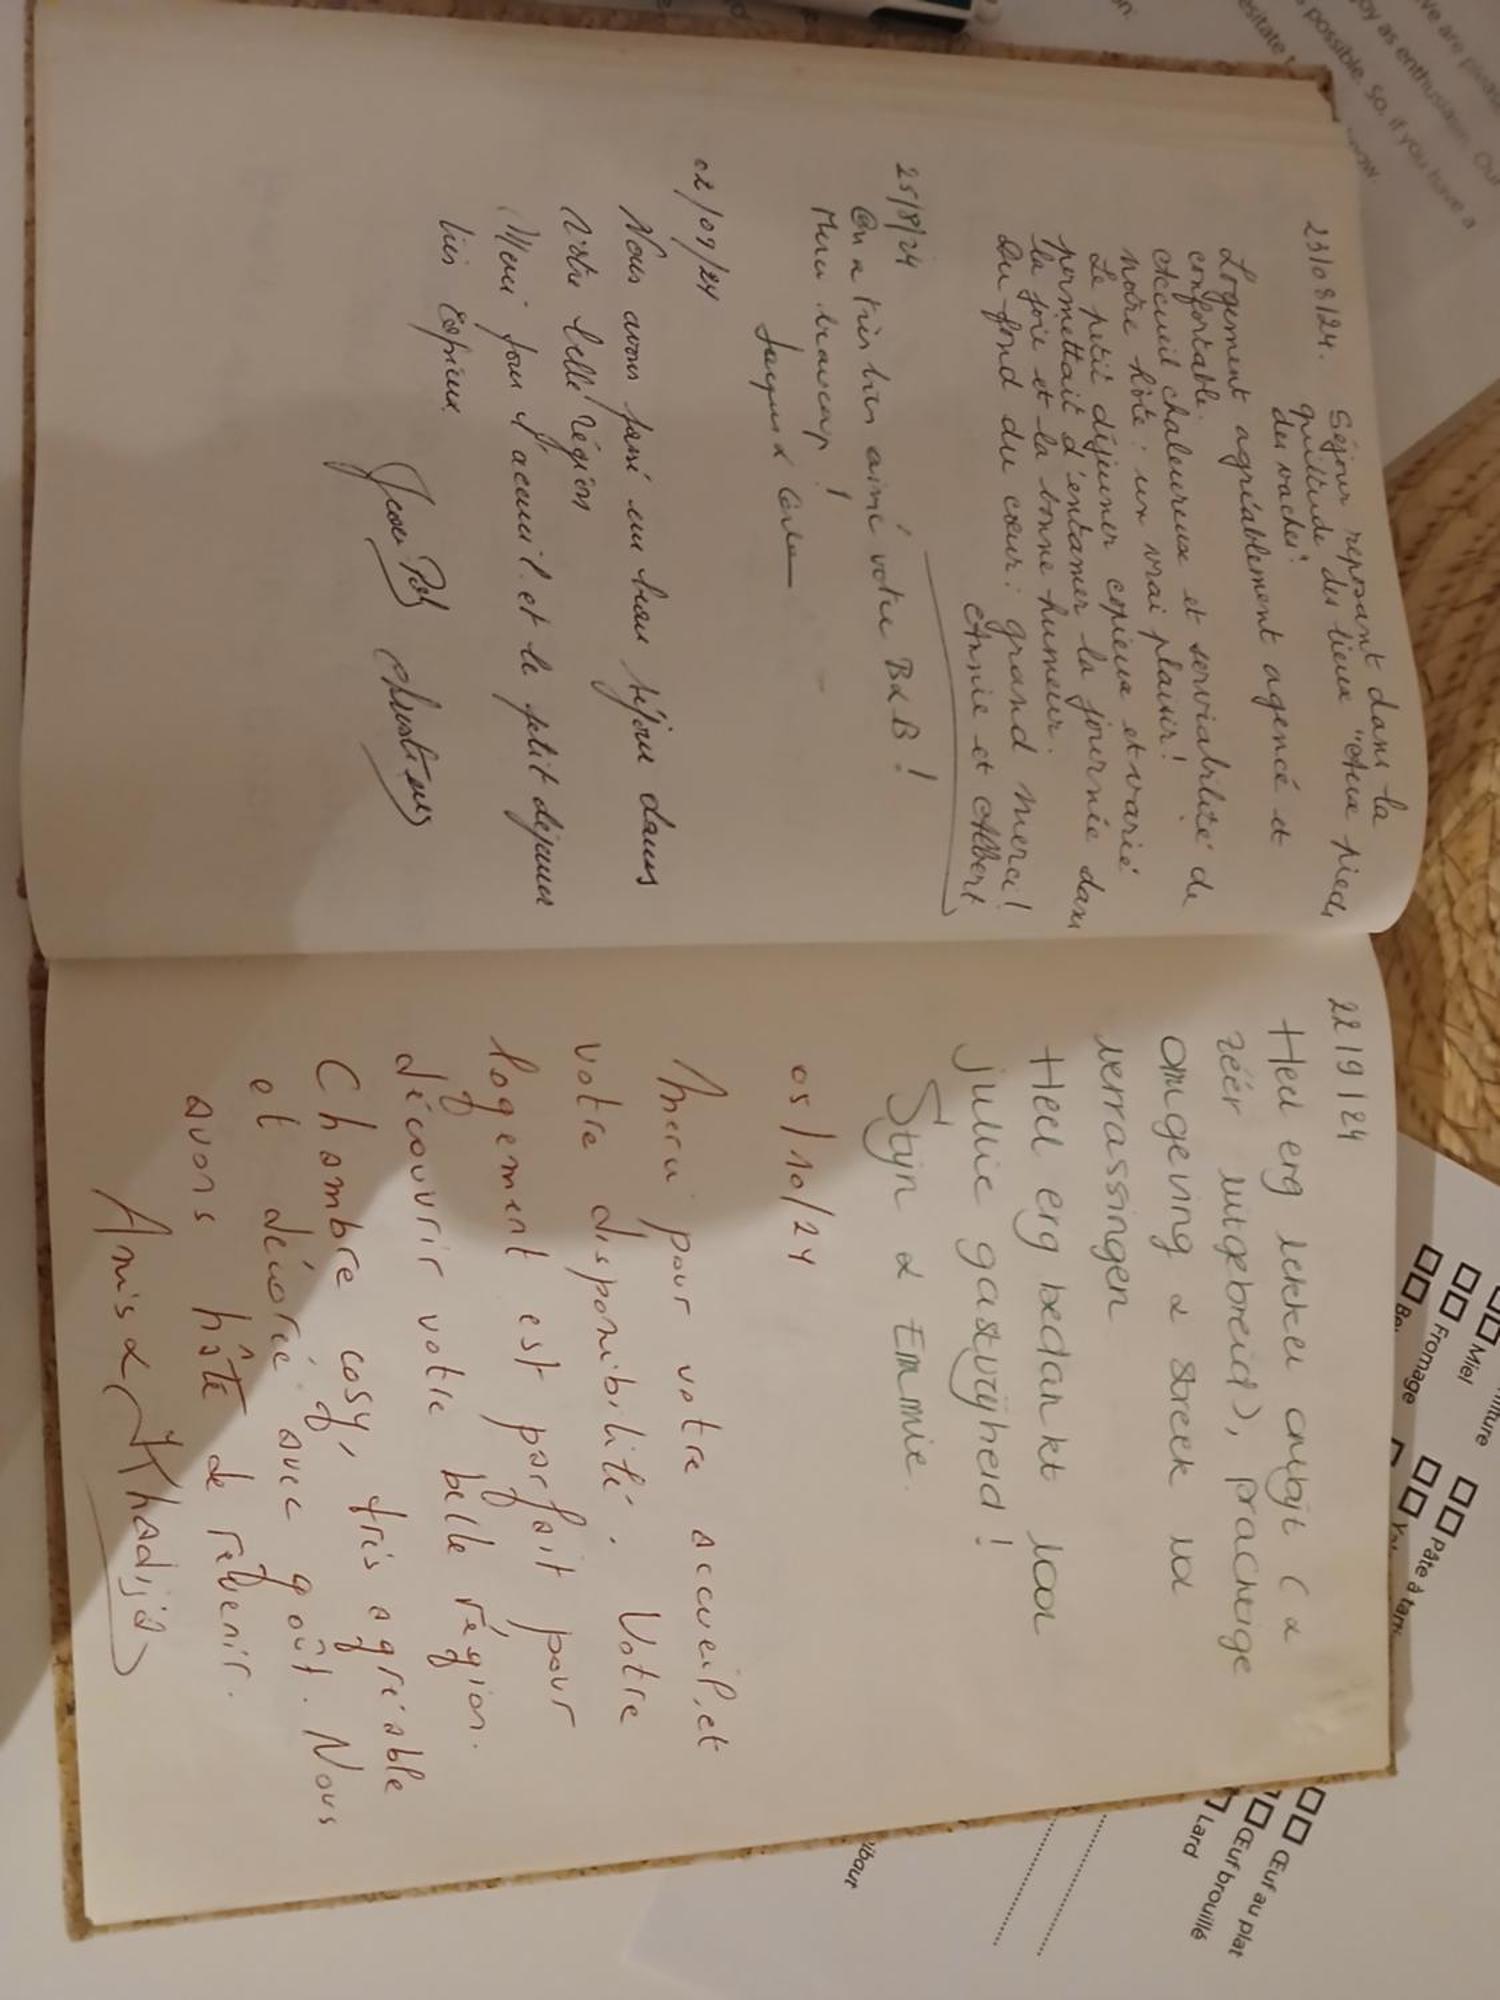 23/08/24.
Séjour reposant dans la
quiétude des lieux "Aux pieds
des vaches".
Logement agréablement agencé et
confortable.
Accueil chaleureux et serviabilité de
notre hôte : un vrai plaisir!
Le petit déjeuner copieux et varié
permettait d'entamer la journée dans
la joie et la bonne humeur.
Du fond du cœur : grand merci!
Annie et Albert
25/8/24
On a très bien aimé votre B&B !
Merci beaucoup !
02/09/24
Nous avons passé un beau séjour dans
Votre belle région
Merci pour l'accueil et le petit déjeuner
très copieux
Jean Pol
22/9/24
Heel erg lekker ontbijt (&
zéér uitgebreid), prachtige
omgeving & streek vd
verrassingen
Heel erg bedankt voor
jullie gastvrijheid !
Stijn & Emmie.
05/10/24
Merci pour votre accueil, et
votre disponibilité. Votre
logement est parfait pour
découvrir votre belle région.
Chambre cosy, très agréable
et décorée avec goût. Nous
avons hâte de revenir.
Anis & Khadija
Miel
Fromage
Pâte à tart
Œuf au plat
Œuf brouillé
Lard
possible. So, if you have a